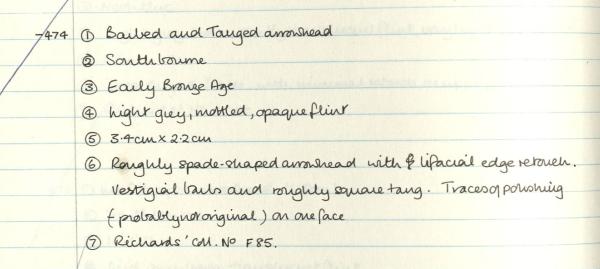 -474 ① Barbed and Tanged arrowhead
② Southbourne
③ Early Bronze Age
④ Light grey, mottled, opaque flint
⑤ 3.4cm x 2.2cm
⑥ Roughly spade-shaped arrowhead with bifacial edge retouch.
Vestigial barbs and roughly square tang. Traces of polishing
(probably not original) on one face
⑦ Richards' Coll. No F85.